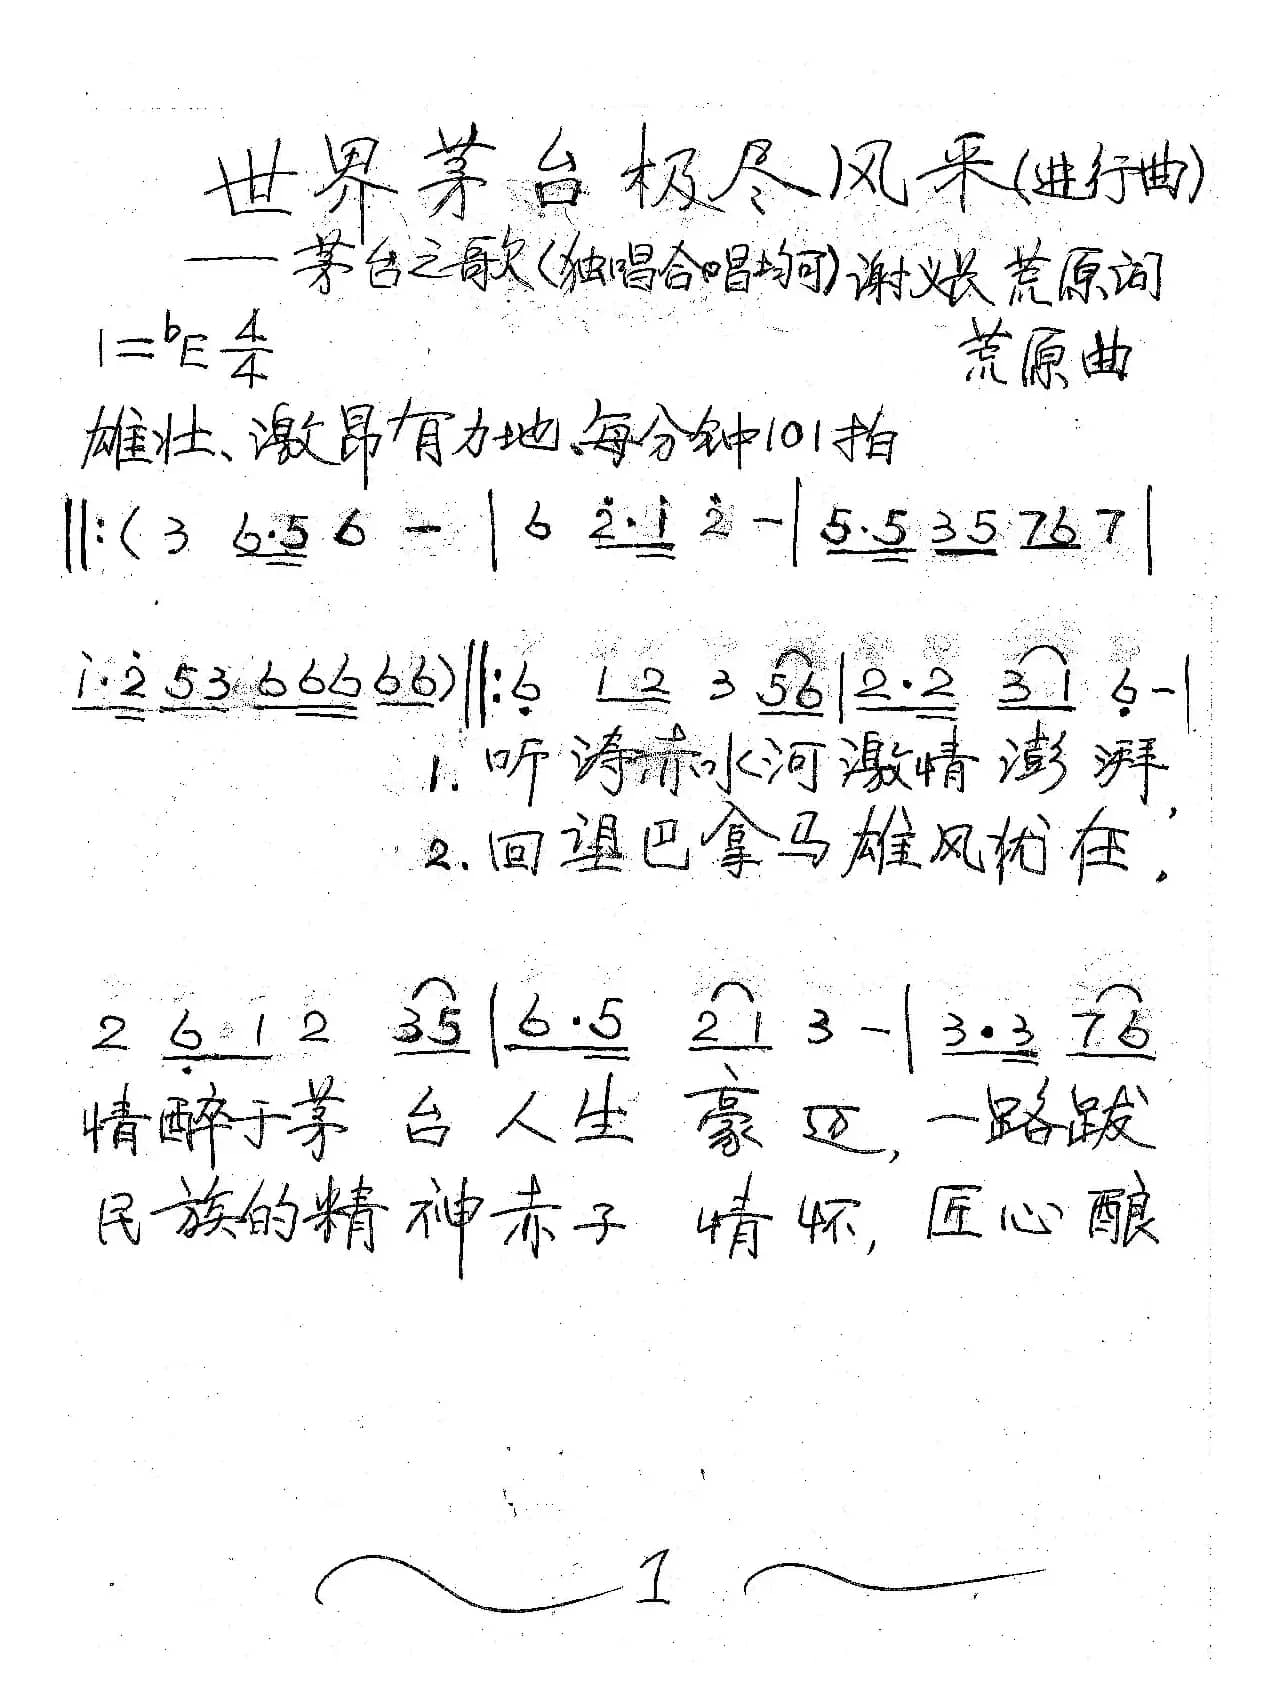 世界茅台极尽风采(进行曲)
——茅台之歌(独唱合唱均可)谢义长 荒原词
1=bE 4/4 荒原曲
雄壮、激昂有力地、每分钟101拍
‖:(3 6·5 6 - | 6 2̇·1̇ 2̇ - | 5·5 35 76 7 |
1̇·2̇ 53 6666 66)‖:6̣ 12 3 56 | 2·2 31 6̣ - |
1. 听涛赤水河激情澎湃,
2. 回望巴拿马雄风犹在.
2 6̣1 2 35 | 6·5 21 3 - | 3·3 76
情醉于茅台人生豪迈,一路跋
民族的精神赤子情怀,匠心酿
1